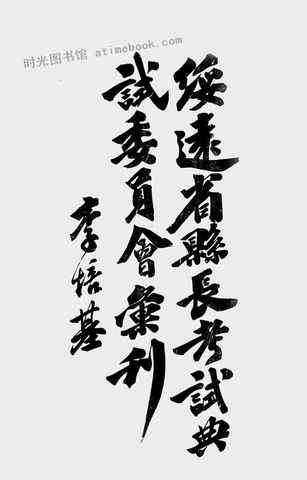 时光图书馆 atimebook.com
綏遠省縣長考試典
試委員會彙刊
李培基